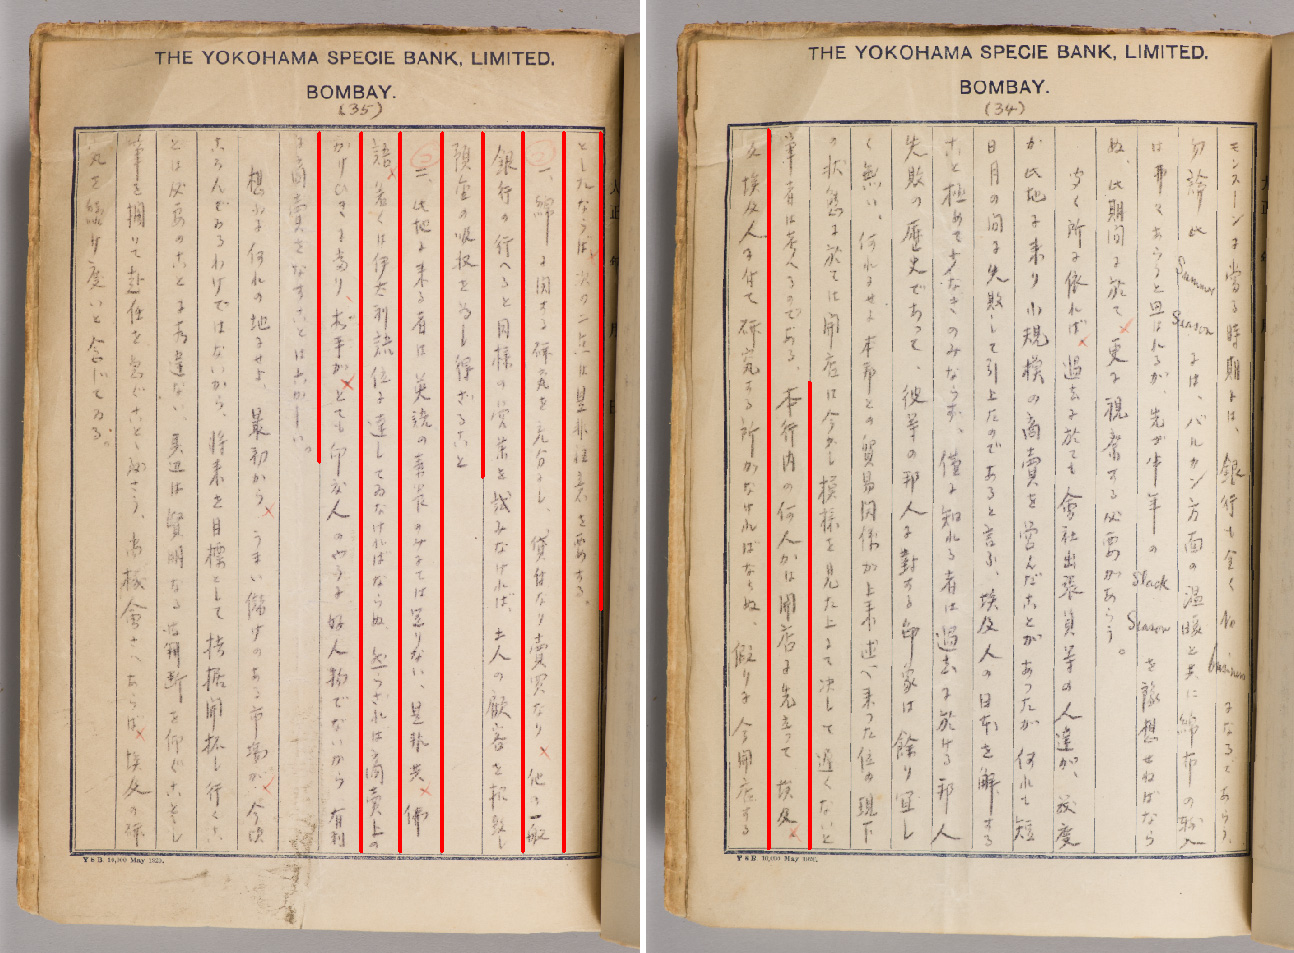 THE YOKOHAMA SPECIE BANK, LIMITED.
BOMBAY.
(34)
モンスーンに當る時期には、銀行も全く No business になるであらう、
勿論此 Summer Season には、バルカン方面の温暖と共に綿布の輸入
はあらうと思はれるが、先が半年の Slack Season を豫想せねばなら
ぬ、此期間に於て、更に視察する必要があらう。
聞く所に依れば、過去に於ても會社出張員等の人達が、数度
か此地に来り小規模の商賣を営んだことがあったが何れも短
日月の間に失敗して引上たのであると言ふ、埃及人の日本を解する
こと極めて少なきのみならず、僅に知れる者は過去に於ける邦人
失敗の歴史であって、彼等の邦人に對する印象は餘り宜し
く無い、何れにせよ本邦との貿易関係が上来述べ来った位の現下
の状態に於ては開店は今少し模様を見た上にて決して遅くないと
筆者は考へるのである、本行内の何人かは開店に先立って埃及
及埃及人に付て研究する所がなければならぬ、假りに今開店する
Y & B. 10,000 May 1920.
THE YOKOHAMA SPECIE BANK, LIMITED.
BOMBAY.
(35)
としたならば、次の二点は是非注意を要する、
一、綿に関する研究を充分にし、貸付なり賣買なり、他の一般
銀行の行へると同様の営業を試みなければ、土人の顧客を招致し
預金の吸収を為し得ざること
二、此地に来る者は英語の素養のみにては足りない、是非共、佛
語、若くは伊太利語位に達してゐなければならぬ、然らざれば商賣上の
かけひきに當り、相手がとても印度人のやうな好人物でないから有利
な商賣をなすことはむづかしい。
想ふに何れの地にせよ、最初から、うまい儲けのある市場が、今時
ころんでゐるわけではないから、将来を目標として拮据開拓し行くこ
とは必要のことに相違ない、其辺は賢明なる御判断を仰ぐこととし
筆を擱りて赴任を急ぐことゝ致さう、尚機會さへあらば、埃及の研
究を続け度いと念じてゐる。
Y & B. 10,000 May 1920.